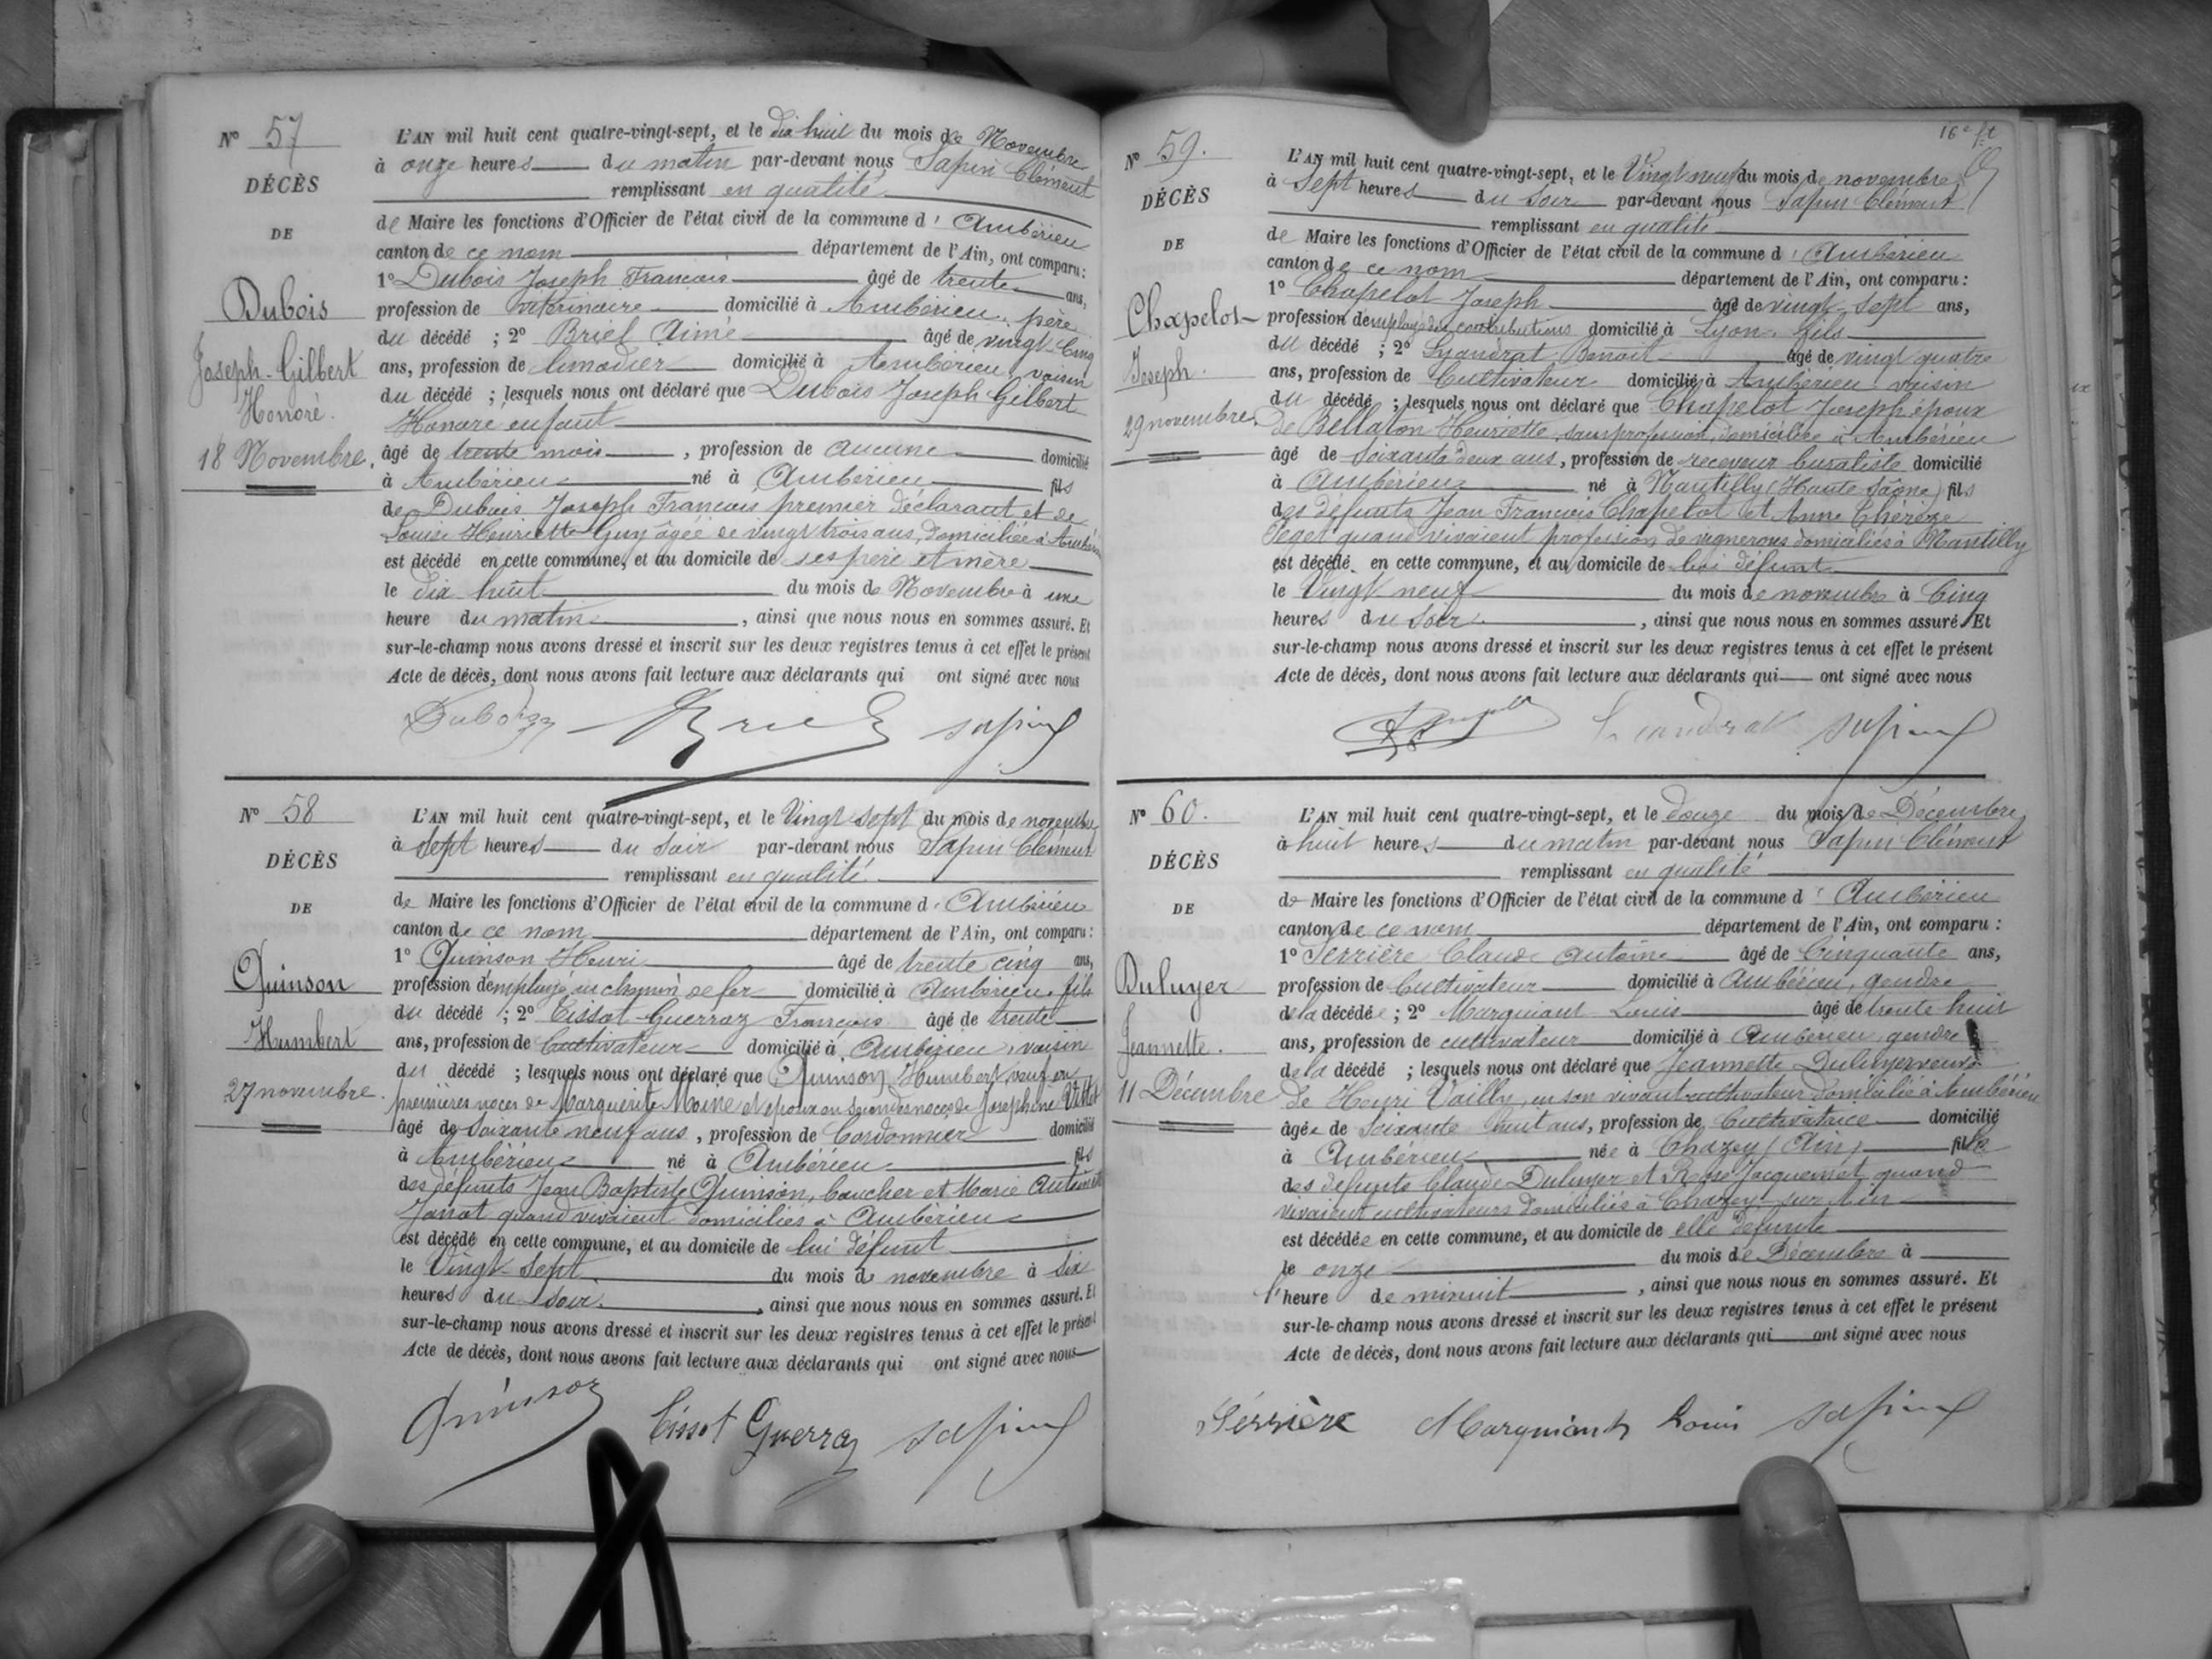 N° 57
DÉCÈS
DE
Dubois
Joseph-Gilbert
Honoré.
18 Novembre.
L'AN mil huit cent quatre-vingt-sept, et le dix huit du mois de Novembre
à onze heures du matin par-devant nous Sapin Clément
remplissant en qualité
de Maire les fonctions d'Officier de l'état civil de la commune d'Ambérieu
canton de ce nom département de l'Ain, ont comparu :
1° Dubois Joseph Francois âgé de trente ans,
profession de vétérinaire domicilié à Ambérieu, père
du décédé ; 2° Briel Aimé âgé de vingt cinq
ans, profession de limadier domicilié à Ambérieu, voisin
du décédé ; lesquels nous ont déclaré que Dubois Joseph Gilbert
Honoré enfant
âgé de trente mois, profession de aucune domicilié
à Ambérieu né à Ambérieu fils
de Dubois Joseph Francois premier déclarant et de
Louise Henriette Guy âgée de vingt trois ans, domiciliée à
est décédé en cette commune, et au domicile de ses père et mère
le dix huit du mois de Novembre à une
heure du matin, ainsi que nous nous en sommes assuré. Et
sur-le-champ nous avons dressé et inscrit sur les deux registres tenus à cet effet le présent
Acte de décès, dont nous avons fait lecture aux déclarants qui ont signé avec nous
Dubois Briel Sapin
N° 58
DÉCÈS
DE
Quinson
Humbert
27 novembre.
L'AN mil huit cent quatre-vingt-sept, et le Vingt sept du mois de novembre
à Sept heures du Soir par-devant nous Sapin Clément
remplissant en qualité
de Maire les fonctions d'Officier de l'état civil de la commune d'Ambérieu
canton de ce nom département de l'Ain, ont comparu :
1° Quinson Henri âgé de trente cinq ans,
profession d'employé au chemin de fer domicilié à Ambérieu, fils
du décédé ; 2° Tissot-Guerraz Francois âgé de trente
ans, profession de Cultivateur domicilié à Ambérieu, voisin
du décédé ; lesquels nous ont déclaré que Quinson Humbert veuf en
premières noces de Marguerite Moine et époux en secondes noces de Joséphine
âgé de Soixante neuf ans, profession de Cordonnier domicilié
à Ambérieu né à Ambérieu fils
des défunts Jean Baptiste Quinson, boucher et Marie
Janot quand vivaient domiciliés à Ambérieu
est décédé en cette commune, et au domicile de lui défunt
le Vingt-Sept du mois de novembre à Six
heures du Soir, ainsi que nous nous en sommes assuré. Et
sur-le-champ nous avons dressé et inscrit sur les deux registres tenus à cet effet le présent
Acte de décès, dont nous avons fait lecture aux déclarants qui ont signé avec nous
Quinson Tissot Guerraz Sapin
16e ft
N° 59.
DÉCÈS
DE
Chapelot
Joseph.
29 novembre.
L'AN mil huit cent quatre-vingt-sept, et le Vingt neuf du mois de novembre
à Sept heures du Soir par-devant nous Sapin Clément
remplissant en qualité
de Maire les fonctions d'Officier de l'état civil de la commune d'Ambérieu
canton de ce nom département de l'Ain, ont comparu :
1° Chapelot Joseph âgé de vingt-sept ans,
profession d'employé des contributions domicilié à Lyon, fils
du décédé ; 2° Lyandrat Benoit âgé de vingt quatre
ans, profession de Cultivateur domicilié à Ambérieu voisin
du décédé ; lesquels nous ont déclaré que Chapelot Joseph époux
de Bellaton Henriette, sans profession, domiciliée à Ambérieu
âgé de Soixante deux ans, profession de receveur buraliste domicilié
à Ambérieu né à Mantilly (Haute Saône) fils
des défunts Jean Francois Chapelot et Anne Thérèze
Peget quand vivaient profession de vignerons domiciliés à Mantilly
est décédé en cette commune, et au domicile de lui défunt
le Vingt neuf du mois de novembre à Cinq
heures du Soir, ainsi que nous nous en sommes assuré. Et
sur-le-champ nous avons dressé et inscrit sur les deux registres tenus à cet effet le présent
Acte de décès, dont nous avons fait lecture aux déclarants qui ont signé avec nous
Lyandrat Sapin
N° 60.
DÉCÈS
DE
Duluyer
Jeannette.
11 Décembre
L'AN mil huit cent quatre-vingt-sept, et le douze du mois de Décembre
à huit heures du matin par-devant nous Sapin Clément
remplissant en qualité
de Maire les fonctions d'Officier de l'état civil de la commune d'Ambérieu
canton de ce nom département de l'Ain, ont comparu :
1° Serrière Claude Antoine âgé de Cinquante ans,
profession de Cultivateur domicilié à Ambérieu, gendre
de la décédée ; 2° Marguiant Louis âgé de trente huit
ans, profession de cultivateur domicilié à Ambérieu gendre
de la décédé ; lesquels nous ont déclaré que Jeannette Duluyer veuve
de Henri Vailly, en son vivant cultivateur domicilié à Ambérieu
âgée de Soixante huit ans, profession de Cultivatrice domicilié
à Ambérieu née à Chazey (Ain) fille
des défunts Claude Duluyer et Rose Jacquemet quand
vivaient cultivateurs domiciliés à Chazey sur Ain
est décédée en cette commune, et au domicile de elle défunte
le onze du mois de Décembre à
l'heure de minuit, ainsi que nous nous en sommes assuré. Et
sur-le-champ nous avons dressé et inscrit sur les deux registres tenus à cet effet le présent
Acte de décès, dont nous avons fait lecture aux déclarants qui ont signé avec nous
Serrière Marguiant Louis Sapin